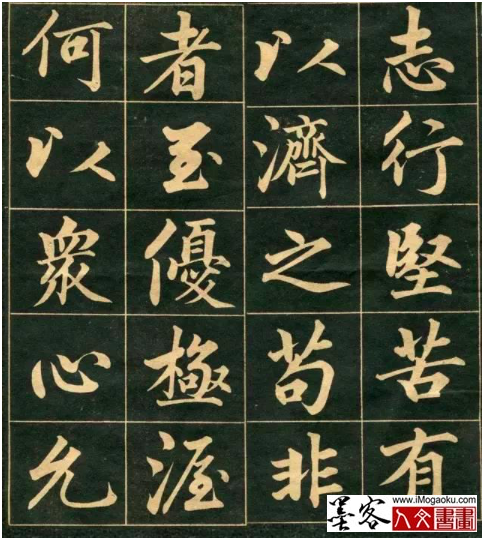 志行堅苦有
以濟之苟非
者至優極渥
何以衆心允
www.iMogaoku.com
墨客
人文書畫